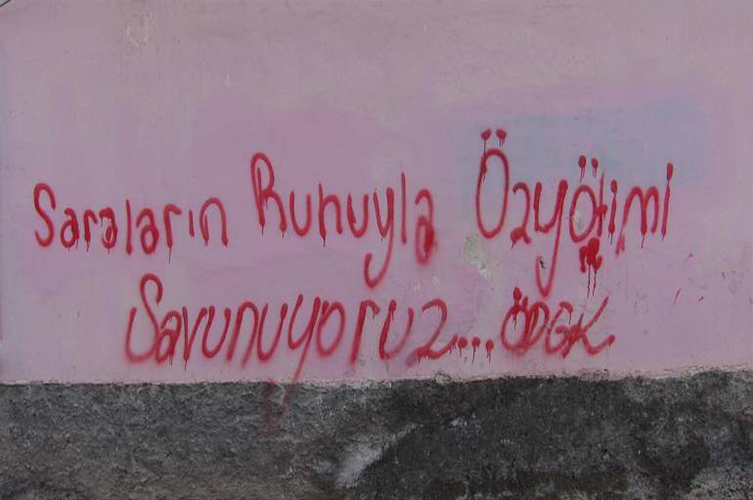 Saraların Ruhuyla Özyötimi
Savunuyoruz... ÖDGK